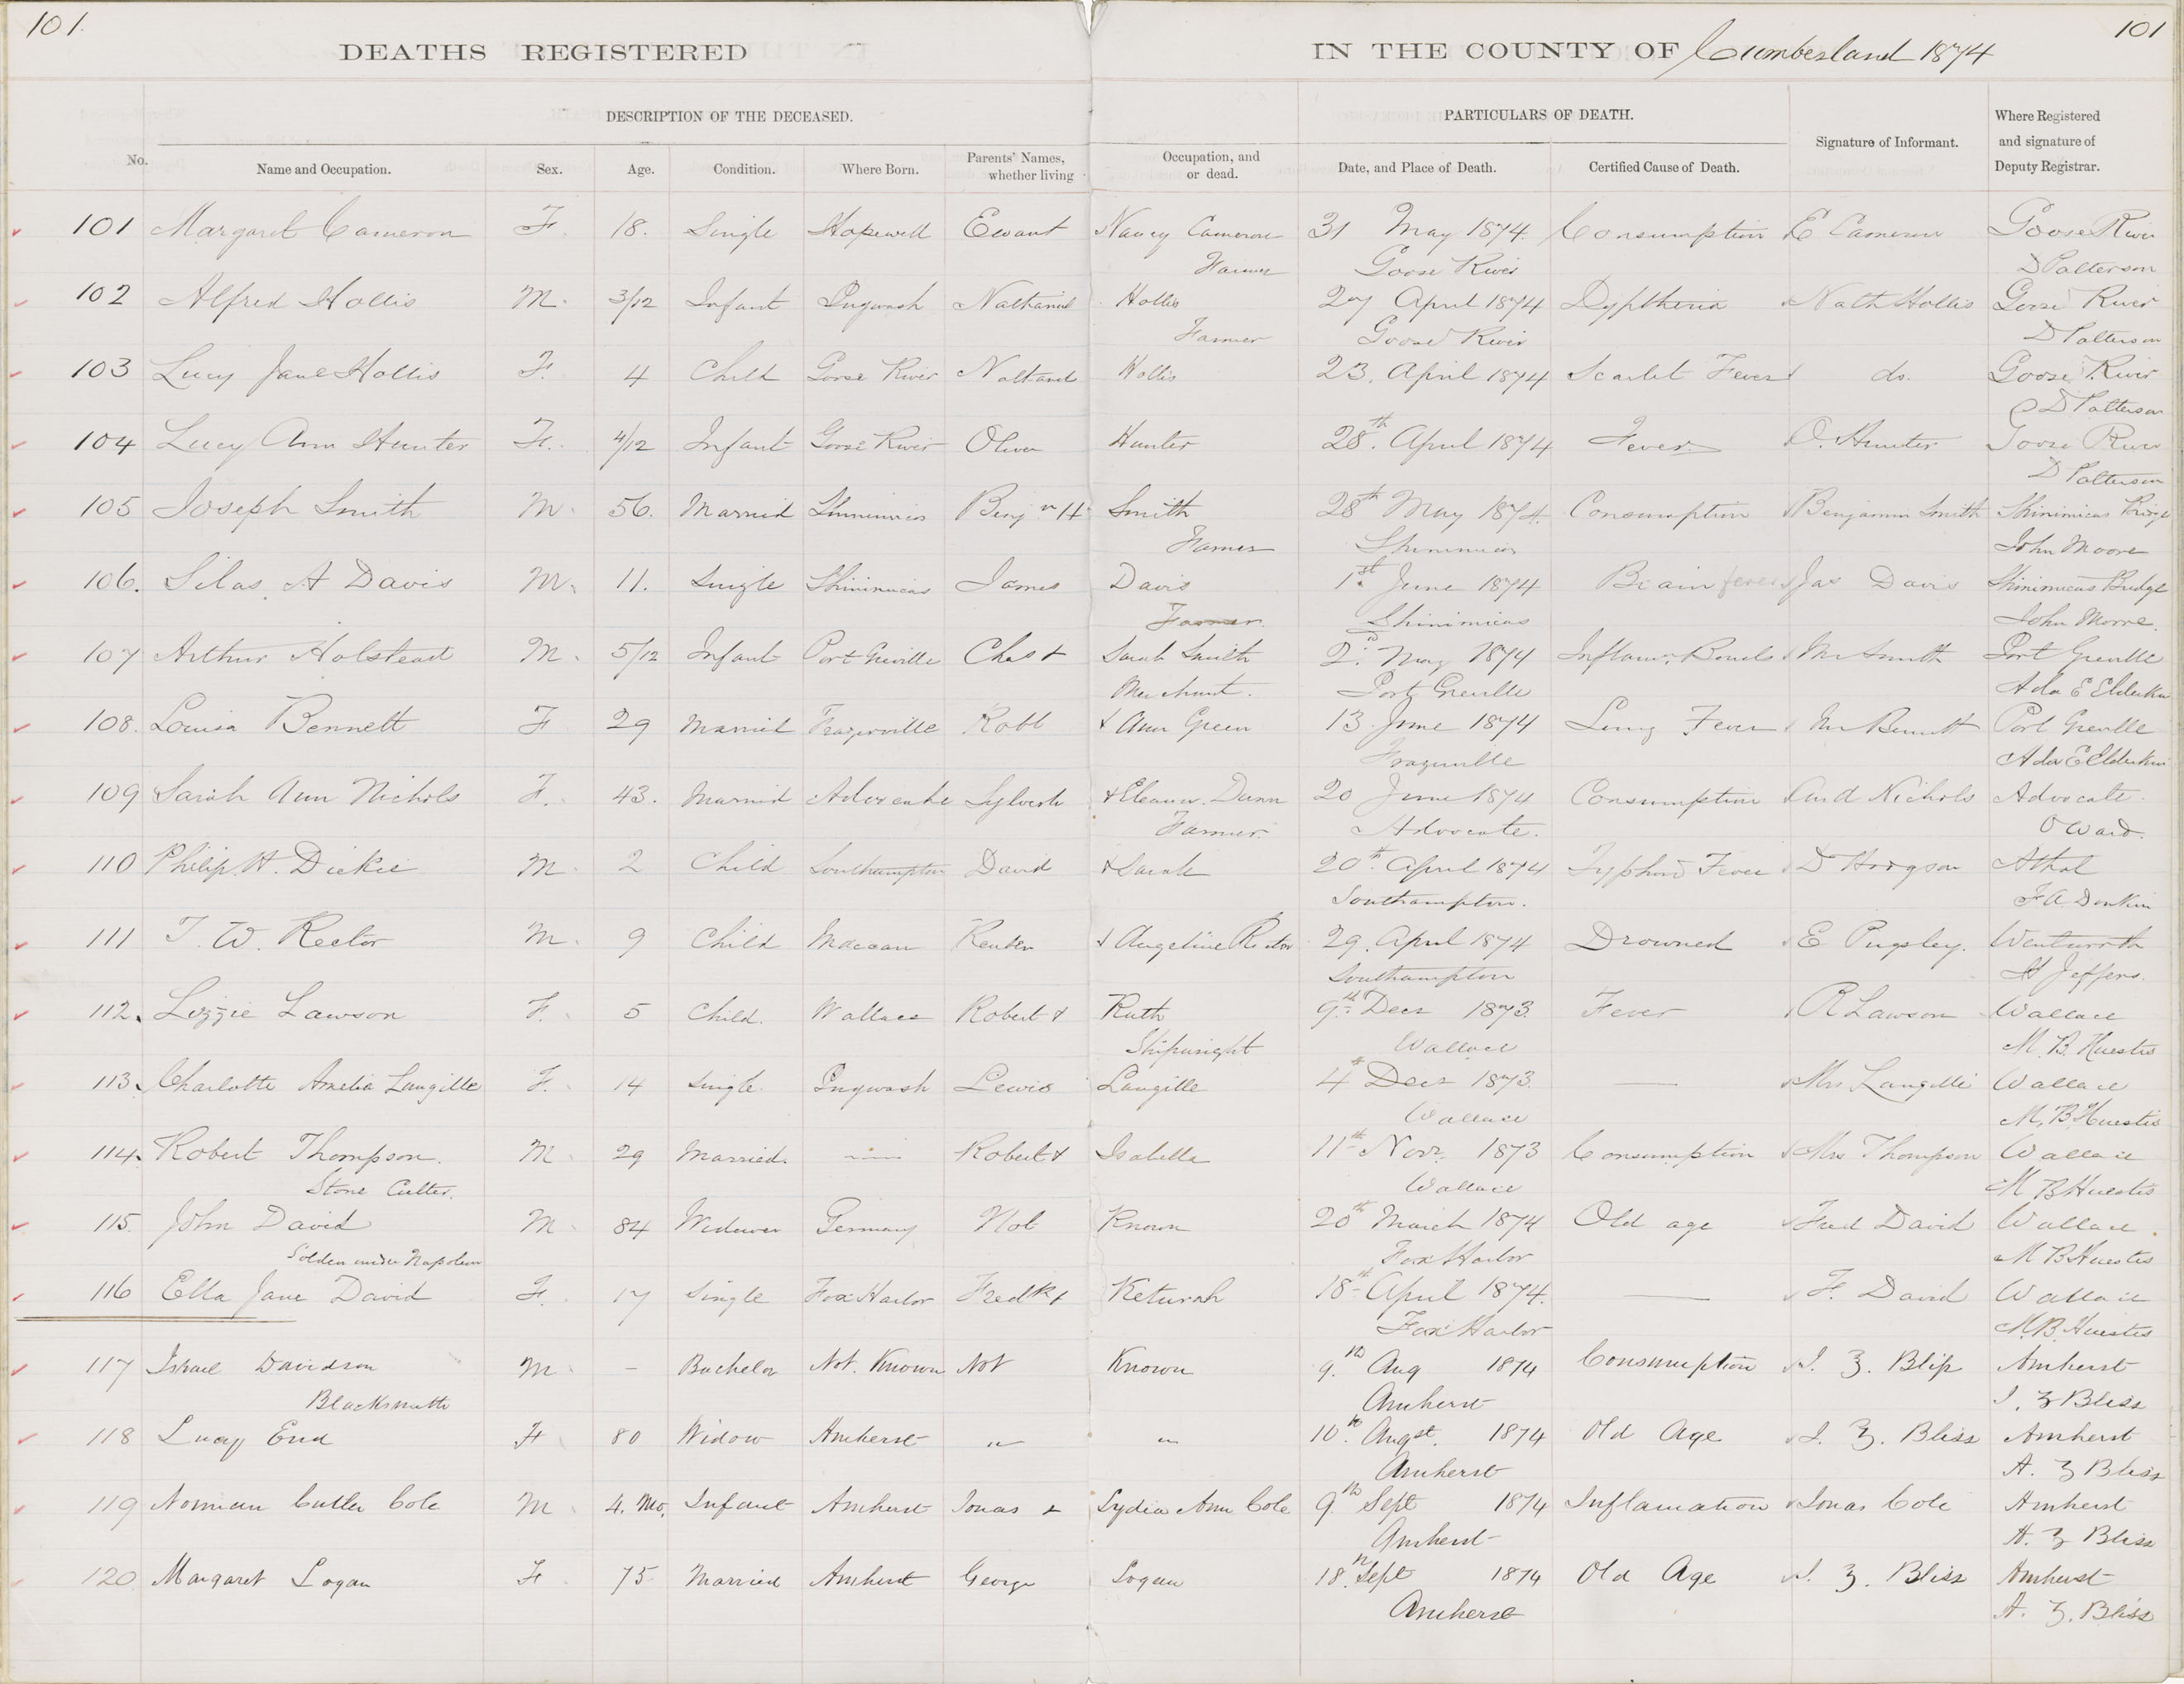 101.
101
DEATHS REGISTERED IN THE COUNTY OF Cumberland 1874
DESCRIPTION OF THE DECEASED. PARTICULARS OF DEATH. Where Registered
and signature of
Deputy Registrar.
Signature of Informant.
No. Name and Occupation. Sex. Age. Condition. Where Born. Parents' Names, whether living Occupation, and or dead. Date, and Place of Death. Certified Cause of Death.
101 Margaret Cameron F. 18. Single Hopewell Ewan & Nancy Cameron 31 May 1874. Consumption E Cameron Goose River
Farmer Goose River D Patterson
102 Alfred Hollis M. 3/12 Infant Pugwash Nathaniel Hollis 27 April 1874 Dyptheria Nath Hollis Goose River
Farmer Goose River D Patterson
103 Lucy Jane Hollis F. 4 Child Goose River Nathaniel Hollis 23. April 1874 Scarlet Fever do. Goose River
D Patterson
104 Lucy Ann Hunter F. 4/12 Infant Goose River Oliver Hunter 28th. April 1874 Fever O. Hunter Goose River
D Patterson
105 Joseph Smith M. 56. Married Shinimicas Benjn H Smith 28th May 1874. Consumption Benjamin Smith Shinimicas Bridge
Farmer Shinimicas John Moore
106. Silas A Davis M. 11. Single Shinimicas James Davis 1st June 1874 Brain fever Jas Davis Shinimicas Bridge
Farmer. Shinimicas John Moore.
107 Arthur Holstead M. 5/12 Infant Port Greville Chas & Sarah Smith 2. May 1874 Inflam. Bowels Mr Smith Port Greville
Merchant. Port Greville Ada E Elderkin
108. Louisa Bennett F 29 Married Frazerville Robt & Ann Green 13 June 1874 Lung Fever Mr Bennett Port Greville
Frazerville Ada E Elderkin
109 Sarah Ann Nichols F. 43. Married Advocate Sylvester & Eleanor Dunn 20 June 1874 Consumption Nichols Advocate.
Farmer Advocate. O Ward.
110 Philip H. Dickie M. 2 Child Southampton David & Sarah 20th. April 1874 Typhoid Fever D Hodgson Athol
Southampton. F A Donkin
111 T. W. Rector M. 9 Child Maccan Reuben & Angeline Rector 29. April 1874 Drowned E Pugsley. Wentworth
Southampton H Jeffers.
112. Lizzie Lawson F. 5 Child. Wallace Robert & Ruth 9th Decr 1873. Fever R Lawson Wallace
Shipwright Wallace M. B. Huestis
113. Charlotte Amelia Langille F. 14 Single. Pugwash Lewis Langille 4th Decr 1873. — Mrs Langille Wallace
Wallace M. B. Huestis
114. Robert Thompson. M 29 Married. — Robert & Isabella 11th Novr. 1873 Consumption Mrs Thompson Wallace
Stone Cutter. Wallace M B Huestis
115. John David M 84 Widower Germany Not Known 20th March 1874 Old age Fred David Wallace.
Soldier under Napoleon Fox Harbor M B Huestis
116 Ella Jane David F. 17 Single Fox Harbor Fredk & Keturah 18th April 1874. — F. David Wallace
Fox Harbor M. B. Huestis
117 Israel Davidson M. – Bachelor Not. Known Not Known 9.th Aug 1874 Consumption J. Z. Bliss Amherst
Blacksmith Amherst J. Z Bliss
118 Lucy F 80 Widow Amherst " " 10th. Augst. 1874 Old Age J. Z. Bliss Amherst
Amherst A. Z Bliss
119 Norman Cutler Cole M 4. Mo. Infant Amherst Jonas & Lydia Ann Cole 9.th Sept 1874 Inflamation Jonas Cole Amherst
Amherst A. Z Bliss
120 Margaret Logan F. 75 Married Amherst George Logan 18.th Sept 1874 Old Age J. Z. Bliss Amherst
Amherst A. Z. Bliss